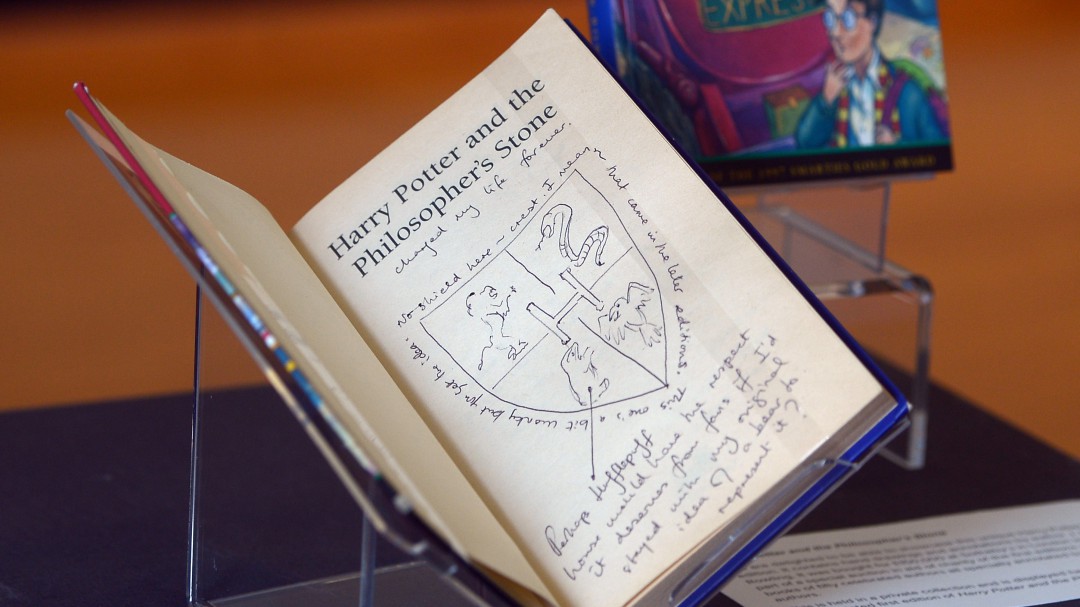 EXPRES
THE 1997 SMARTIES GOLD AWARD
Harry Potter and the
Philosopher's Stone
changed my life forever.
No shield here ~ crest. I mean that came in the later editions This one's a bit wonky but you get the idea.
H
Perhaps Hufflepuff
house would have the respect
it deserves from fans if I'd
stayed with my original
idea of a bear to
represent it?
and the Philosopher's Stone
is held in a private collection and is displayed
first edition of Harry Potter and the